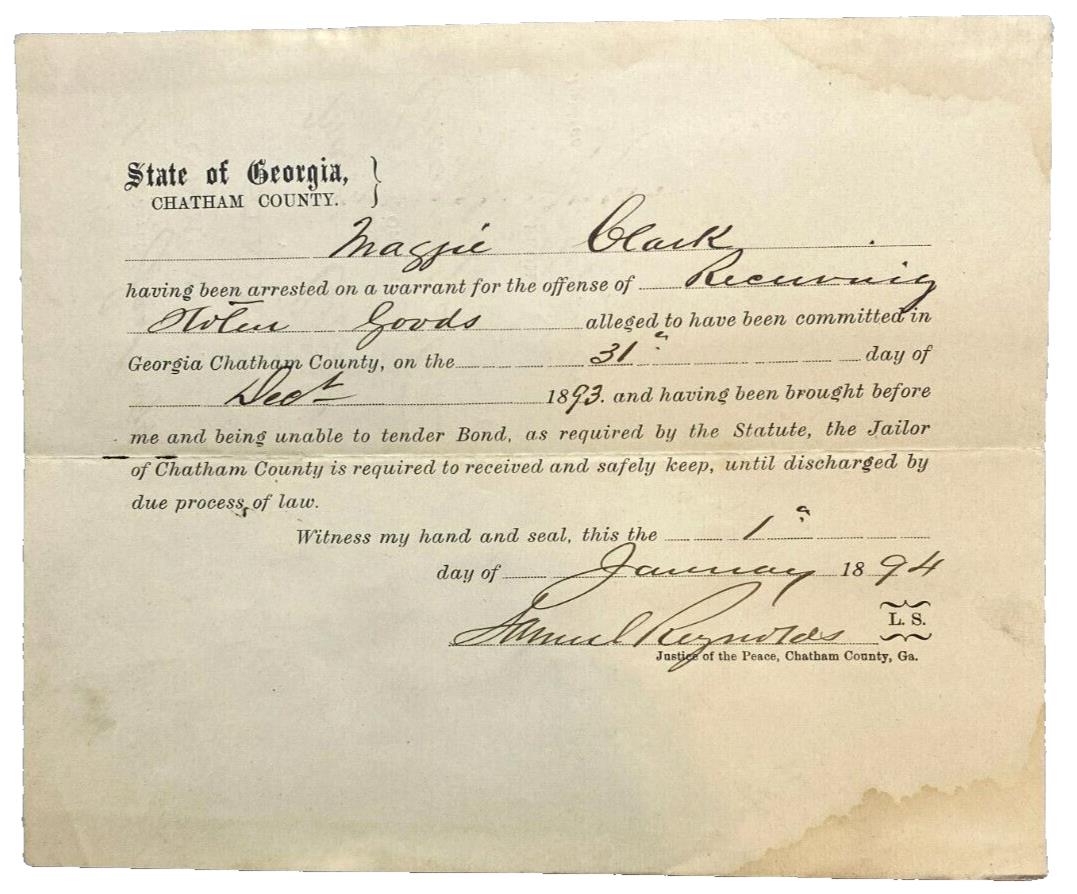 State of Georgia,
CHATHAM COUNTY.
Maggie Clark
having been arrested on a warrant for the offense of Receiving
Stolen Goods alleged to have been committed in
Georgia Chatham County, on the 31" day of
Dect 1893. and having been brought before
me and being unable to tender Bond, as required by the Statute, the Jailor
of Chatham County is required to received and safely keep, until discharged by
due process of law.
Witness my hand and seal, this the 1"
day of January 1894
Samuel Reynolds L. S.
Justice of the Peace, Chatham County, Ga.